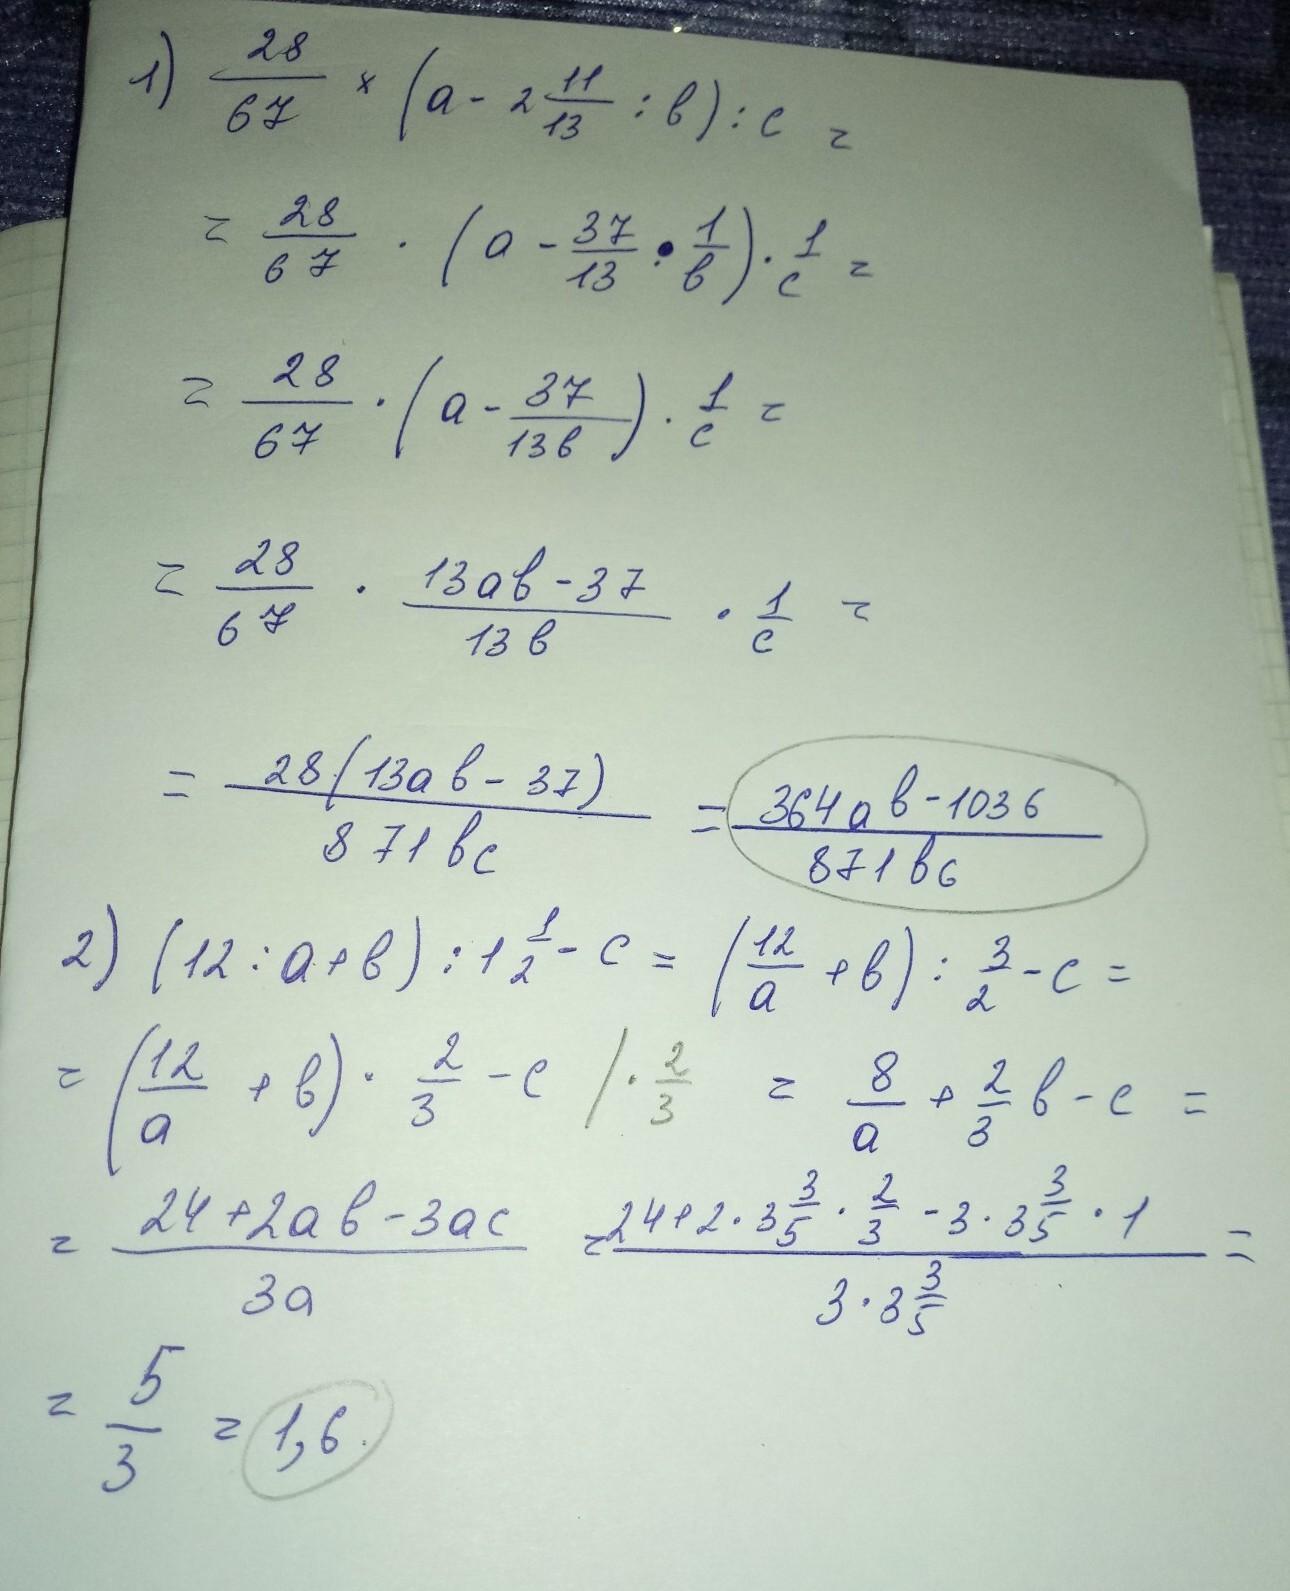 1) 28/67 × (a - 2 11/13 : b) : c =
= 28/67 · (a - 37/13 · 1/b) · 1/c =
= 28/67 · (a - 37/13b) · 1/c =
= 28/67 · 13ab - 37/13b · 1/c =
= 28(13ab - 37)/871bc = 364ab - 1036/871bc
2) (12 : a + b) : 1 1/2 - c = (12/a + b) : 3/2 - c =
= (12/a + b) · 2/3 - c / · 2/3 = 8/a + 2/3 b - c =
= 24 + 2ab - 3ac/3a = 24 + 2 · 3 3/5 · 2/3 - 3 · 3 3/5 · 1/3 · 3 3/5 =
= 5/3 = 1,6.